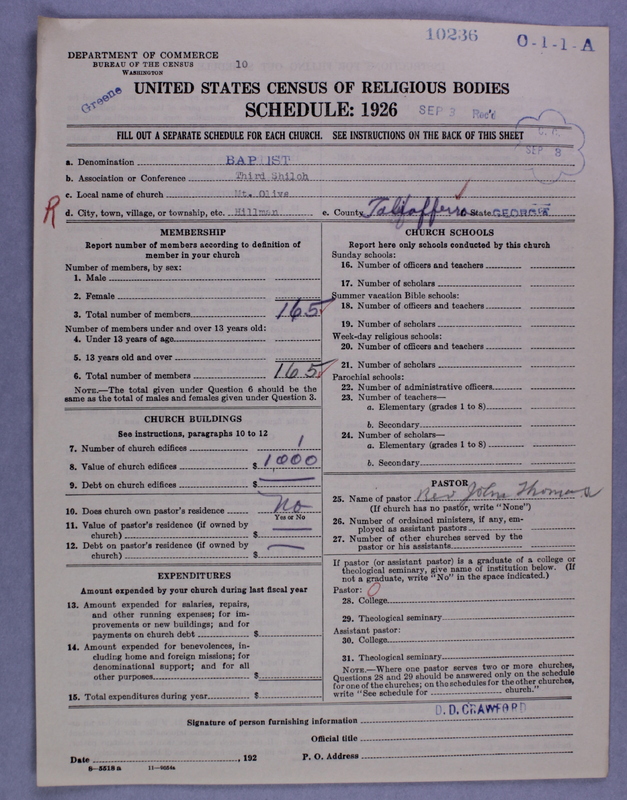 10236
O-1-1-A
DEPARTMENT OF COMMERCE
BUREAU OF THE CENSUS
WASHINGTON
10
Greene
UNITED STATES CENSUS OF RELIGIOUS BODIES
SCHEDULE: 1926
SEP 3 Rec'd
FILL OUT A SEPARATE SCHEDULE FOR EACH CHURCH. SEE INSTRUCTIONS ON THE BACK OF THIS SHEET
SEP 3
a. Denomination BAPTIST
b. Association or Conference Third Shiloh
c. Local name of church Mt. Olive
R
d. City, town, village, or township, etc. Hillman e. County Taliaferro State GEORGIA
MEMBERSHIP
Report number of members according to definition of
member in your church
Number of members, by sex:
1. Male
2. Female
3. Total number of members 165
Number of members under and over 13 years old:
4. Under 13 years of age
5. 13 years old and over
6. Total number of members 165
NOTE.—The total given under Question 6 should be the
same as the total of males and females given under Question 3.
CHURCH BUILDINGS
See instructions, paragraphs 10 to 12
7. Number of church edifices 1
8. Value of church edifices $ 1,000
9. Debt on church edifices $
10. Does church own pastor's residence No
Yes or No
11. Value of pastor's residence (if owned by
church) $
12. Debt on pastor's residence (if owned by
church) $
EXPENDITURES
Amount expended by your church during last fiscal year
13. Amount expended for salaries, repairs,
and other running expenses; for im-
provements or new buildings; and for
payments on church debt $
14. Amount expended for benevolences, in-
cluding home and foreign missions; for
denominational support; and for all
other purposes $
15. Total expenditures during year $
CHURCH SCHOOLS
Report here only schools conducted by this church
Sunday schools:
16. Number of officers and teachers
17. Number of scholars
Summer vacation Bible schools:
18. Number of officers and teachers
19. Number of scholars
Week-day religious schools:
20. Number of officers and teachers
21. Number of scholars
Parochial schools:
22. Number of administrative officers
23. Number of teachers—
a. Elementary (grades 1 to 8)
b. Secondary
24. Number of scholars—
a. Elementary (grades 1 to 8)
b. Secondary
PASTOR
25. Name of pastor Rev John Thomas
(If church has no pastor, write "None")
26. Number of ordained ministers, if any, em-
ployed as assistant pastors
27. Number of other churches served by the
pastor or his assistants
If pastor (or assistant pastor) is a graduate of a college or
theological seminary, give name of institution below. (If
not a graduate, write "No" in the space indicated.)
Pastor: O
28. College
29. Theological seminary
Assistant pastor:
30. College
31. Theological seminary
NOTE.—Where one pastor serves two or more churches,
Questions 28 and 29 should be answered only on the schedule
for one of the churches; on the schedules for the other churches,
write "See schedule for church."
D. D. CRAWFORD
Signature of person furnishing information
Official title
Date , 192 P. O. Address
8—5518 a 11—9654a